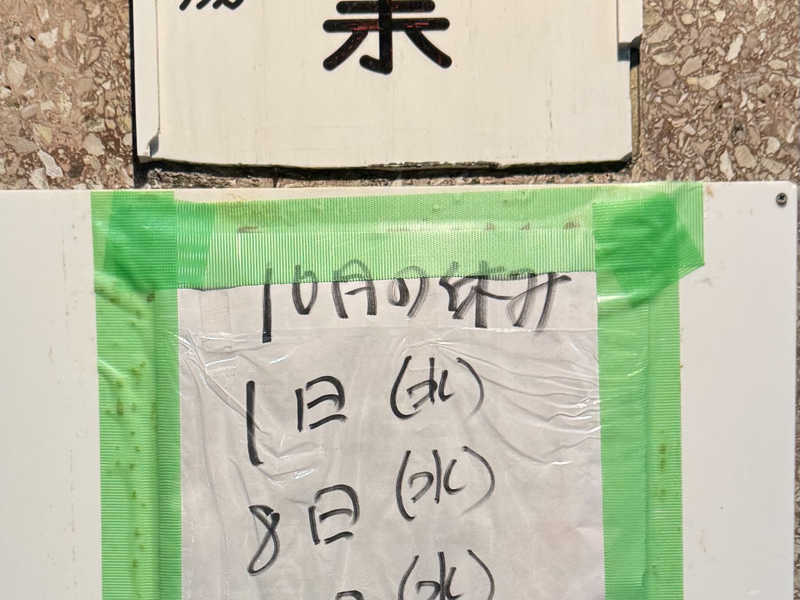 10月の休み
1日(水)
8日(水)
日(水)